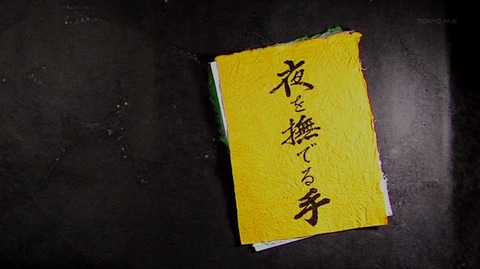 TOKYO MX
夜を撫でる手